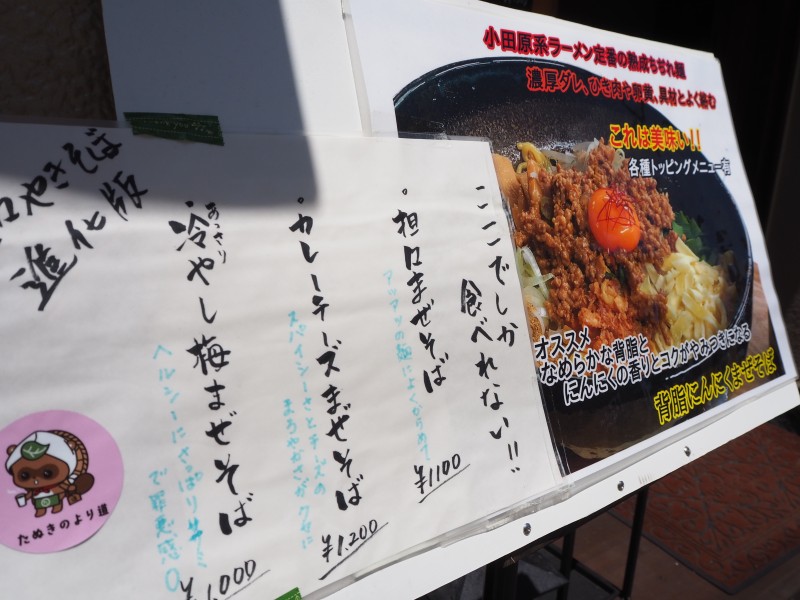 小田原系ラーメン定番の熟成ちぢれ麺
濃厚ダレ、ひき肉や卵黄、具材とよく絡む
これは美味い!!
各種トッピングメニュー有
オススメ
なめらかな背脂と
にんにくの香りとコクがやみつきになる
背脂にんにくまぜそば
ここでしか
食べれない!!
・担々まぜそば
アツアツの麺によくからめて
¥1100
・カレーチーズまぜそば
スパイシーさとチーズの
まろやかさがクセに
¥1,200
あっさり
・冷やし梅まぜそば
ヘルシーにさっぱり
で罪悪感0
¥1,000
やきそば
進化版
たぬきのより道